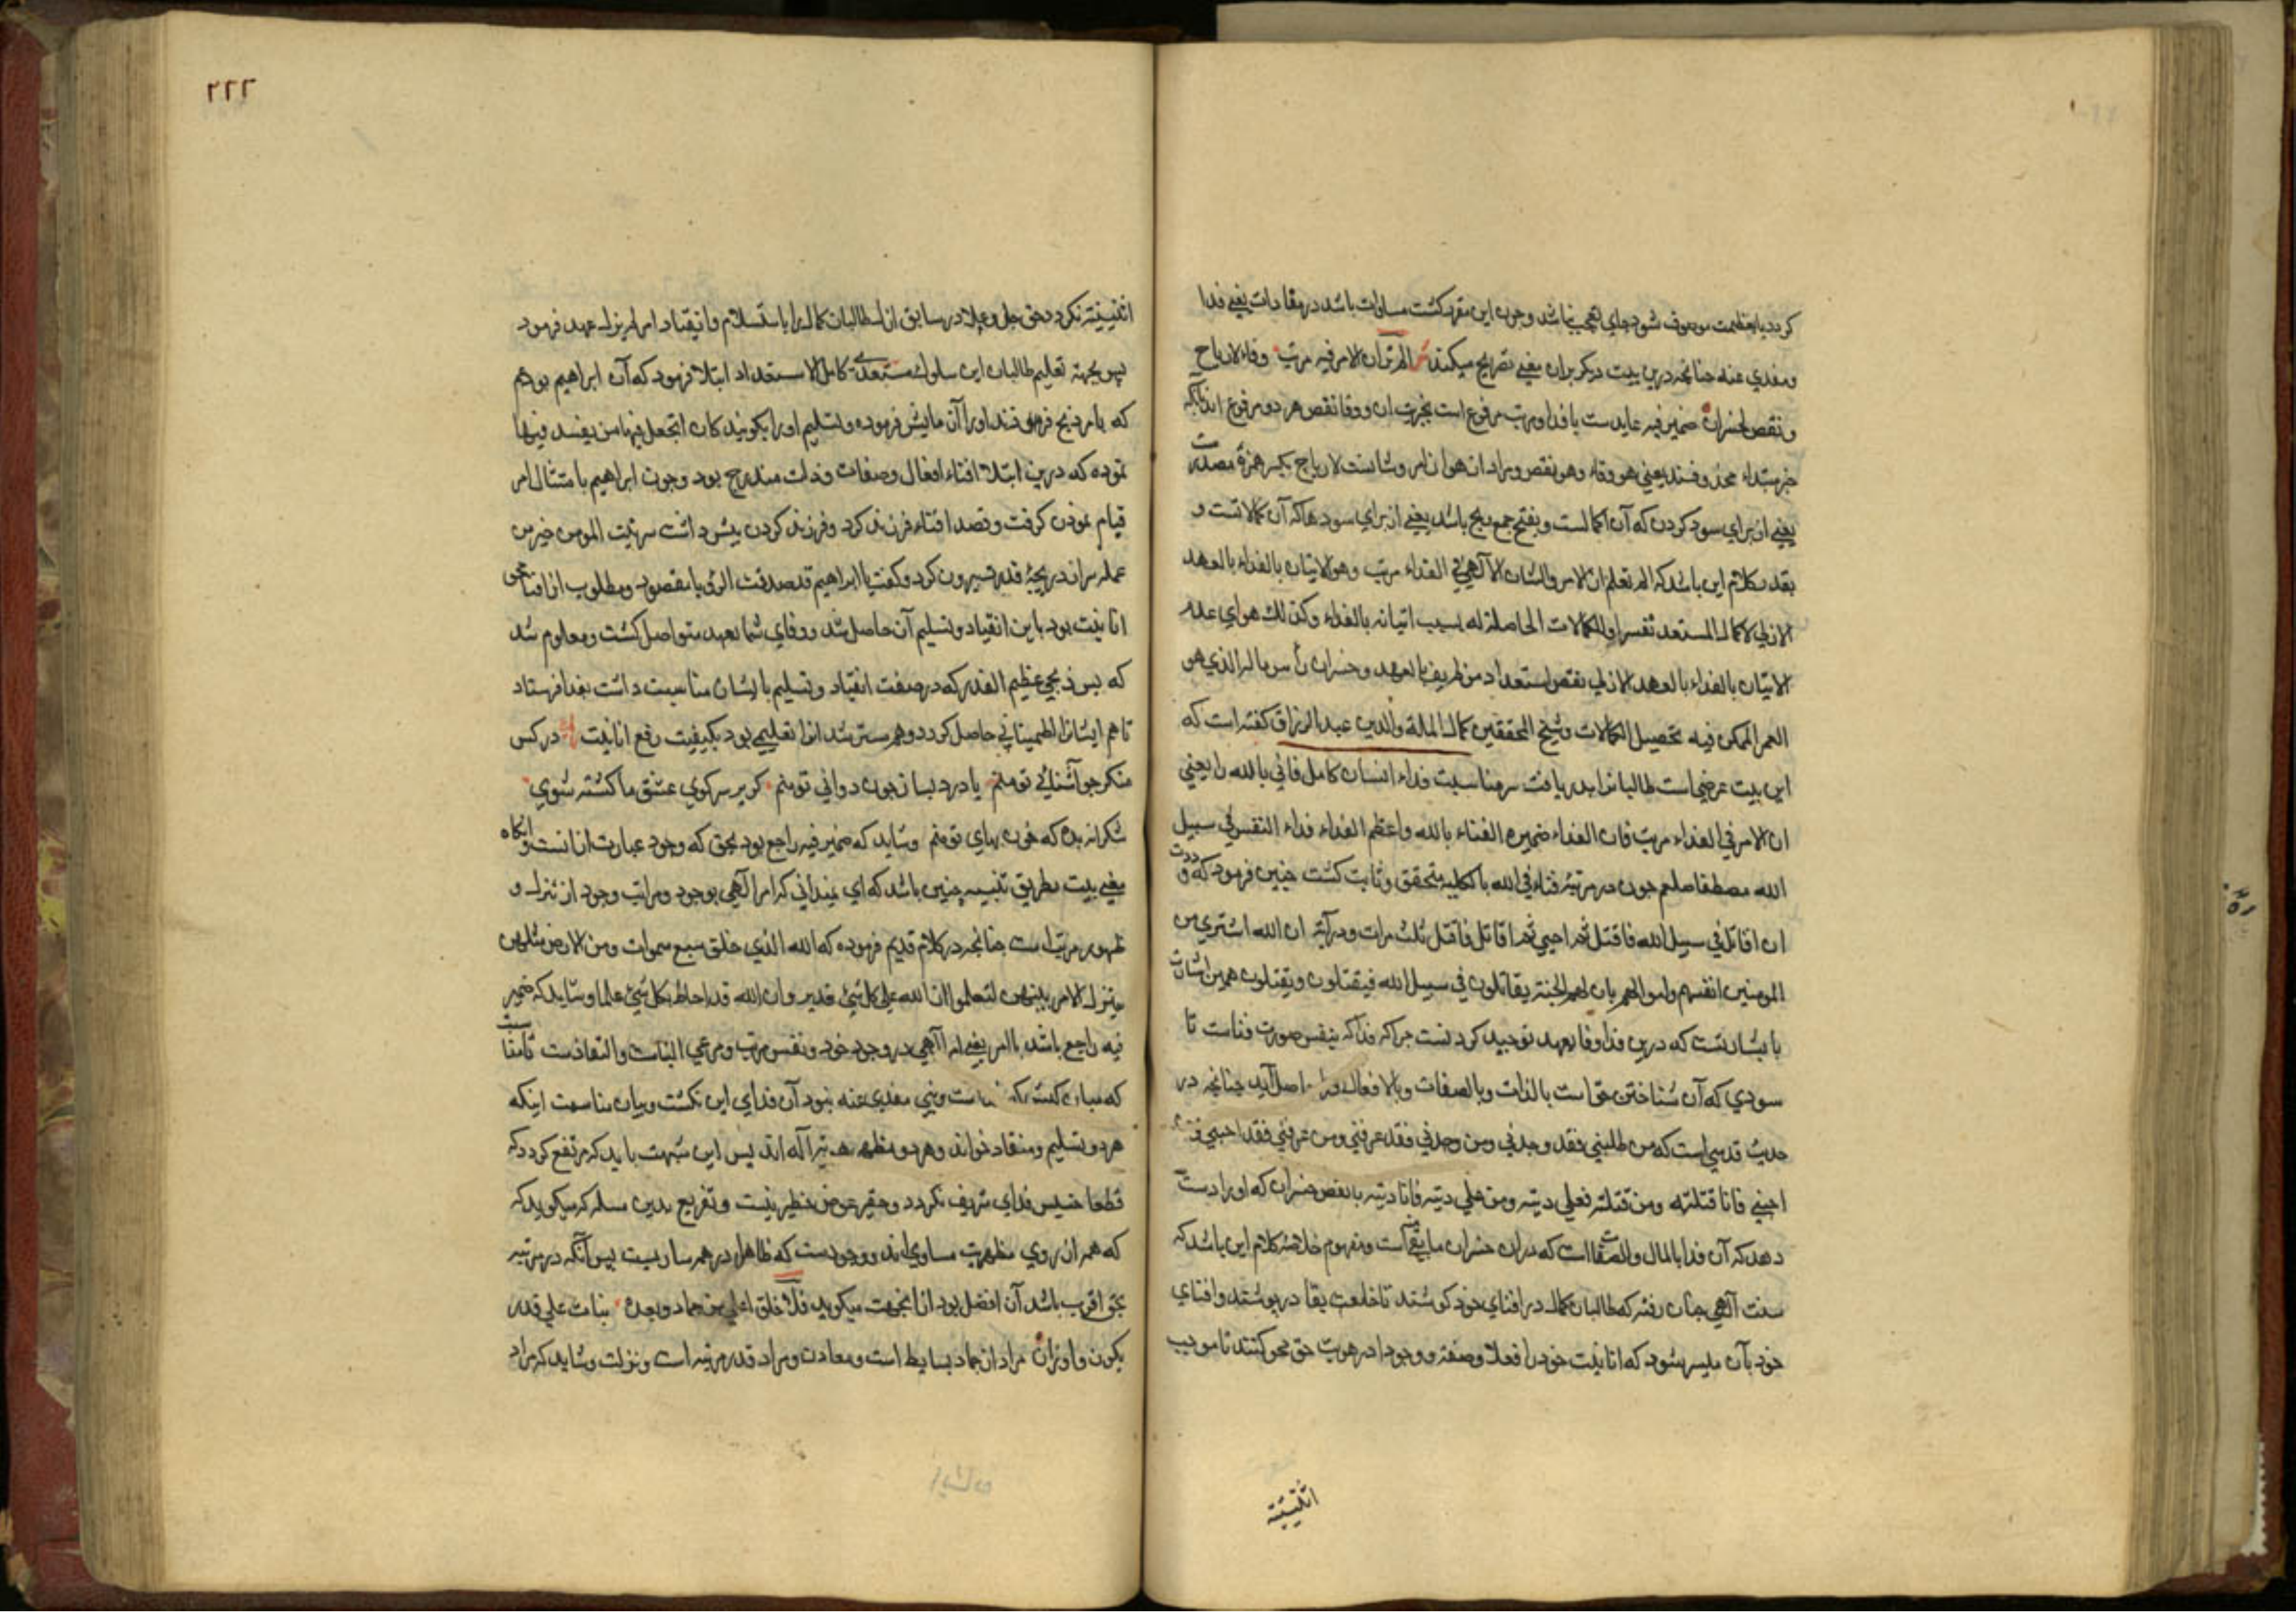 کردد بعظمت موصوف شود جای تعجب نباشد وچون این مقرر کشت مساوات باشد در مفادات یعنی فدا
ومفدی عنه چنانچه درین بیت دیکر بران معنی تصریح میکند الم تر ان الامر فیه مرتب وفاء لارباح
ونقص لخسران ضمیر فیه عایدست بافدا ومرتب مرفوع است بخبریت ان ووفا ونقص هر دو مرفوع اند بآنکه
خبر مبتداء محذوفند یعنی هو وفاء وهو نقص ومراد از هو ان امر وشانست لارباح بکسر همزه مصدرست
یعنی از برای سود کردن که آن اکمالست وبفتح جمع ربح باشد یعنی از برای سودها که آن کمالاتست و
تقدیر کلام این باشد که الم تعلم ان الامر والشان الآلهی فی الفداء مرتب وهو الاتیان بالفداء بالعهد
الازلی لاکمال المستعد نفسه او للکمالات الحاصلة له بسبب اتیانه بالفداء وکذلک هو ای عدم
الاتیان بالفداء بالعهد الازلی نقص استعداد من طریق العهد وخسران رأس ماله الذی هو
العمر الممکن فیه تحصیل الکمالات وشیخ المحققین کمال الملة والدین عبد الرزاق کفته است که
این بیت عرضی است طالبانرا بدریافت سر مناسبت فداء انسان کامل فانی بالله را یعنی
ان الامر فی الفداء مرتب فان الفداء ضمیره الفناء بالله واعظم الفداء فداء النفس فی سبیل
الله مصطفا صلعم چون در مرتبۀ فناء فی الله بالکلیه متحقق وثابت کشت چنین فرمود که وددت
ان اقاتل فی سبیل الله فاقتل ثم احیی ثم اقاتل فاقتل ثلث مرات ودر آیۀ ان الله اشتری من
المومنین انفسهم واموالهم بان لهم الجنة یقاتلون فی سبیل الله فیقتلون ویقتلون همین اشارت
بایشانست که درین فدا وفا بعهد توحید کردنست چرا که فدا که بنفس صورت فناست تا
سودی که آن شناختن حق است بالذات وبالصفات وبالافعال اصل آید چنانچه در
حدیث قدسی است که من طلبنی فقد وجدنی ومن وجدنی فقد عرفنی ومن عرفنی فقد احبنی
احبنی فانا قتلته ومن قتلته فعلی دیته ومن علی دیته فانا دیته بانقص خسران که او را دست
دهد که آن فدا بالمال والصفا است که دران خسران مابقی است ومفهوم خلاصۀ کلام این باشد که
سنت آلهی چنان رفته که طالبان کمال در افنای خود کوشند تا خلعت بقا در پوشند وافنای
خود بآن میسر شود که انانیت خود را فعلا وصفة ووجودا در هویت حق محو کنند تا موجب
اثنینیته
۲۲۲
اثنینیته نکردد وحق جل وعلا در سابق ازل طالبان کمال را باستسلام وانقیاد امر لم یزل عهد فرمود
پس بجهة تعلیم طالبان این سلوک مستعدی کامل الاستعداد ابتلا فرمود که آن ابراهیم بود هم
که بامر ذبح فرزند او را آن مایش فرموده وتسلیم او را بکویند کان اتجعل فیها من یفسد فیها
نموده که درین ابتلا افناء افعال وصفات وذات مندرج بود وچون ابراهیم بامتثال امر
قیام نمودن کرفت وقصد افناء فرزند کرد وفرزند کردن پیش داشت سر نیت المومن خیر من
عمله سر از دریچۀ قدس بیرون کرد وکفت یا ابراهیم قد صدقت الرؤیا مقصود ومطلوب از افنا محو
انانیت بود باین انقیاد وتسلیم آن حاصل شد ووفای شما بعهد متواصل کشت ومعلوم شد
که پس ذبحی عظیم القدر که در صفت انقیاد وتسلیم بایشان مناسبت داشت بفدا فرستاد
تا هم ایشانرا اطمینانی حاصل کردد وهم مسترشدانرا تعلیمی بود بکیفیت رفع انانیت در کس
منکر چو آشنائی تو منم یا درد بساز چون دوائی تو منم کر بر سر کوی عشق ما کشته شوی
شکرانه بده که خون بهای تو منم وشاید که ضمیر فیه راجع بود بحق که وجود عبارت از انست وانکاه
معنی بیت بطریق تنبیه چنین باشد که ای نمیدانی که امر آلهی بوجود ومراتب وجود از تنزل و
ظهور مرتب است چنانچه در کلام قدیم فرموده که الله الذی خلق سبع سموات ومن الارض مثلهن
یتنزل الامر بینهن لتعلموا ان الله علی کل شئ قدیر وان الله قد احاط بکل شئ علما وشاید که ضمیر
فیه راجع باشد باامر یعنی امر آلهی در وجود خود ونفس مرتب ومرعی التناسب والتعادست تا مقا
که میان کبش است ونبی مفدی عنه نبود آن فدای این نکشت وبیان مناسبت اینکه
هر دو تسلیم ومنقاد خواند وهر دو مظهر اند پس این شبهت باید که مرتفع کردد که
قطعا خسیس فدای شریف نکردد وحقیر عوض خطیر نیست وتفریع بدین مسله که میکوید که
که هم از روی مظهریت مساوی اند ووجودست که ظاهر در همه ساریست پس آنکه در مرتبه
بحق اقرب باشد آن افضل بود از اینجهت میکوید فلا خلق اعلی من جماد وبعده نبات علی قدر
یکون واوزان مراد از جماد بسایط است ومعادن ومراد قدر مرتبه است ونزلت وشاید که مراد